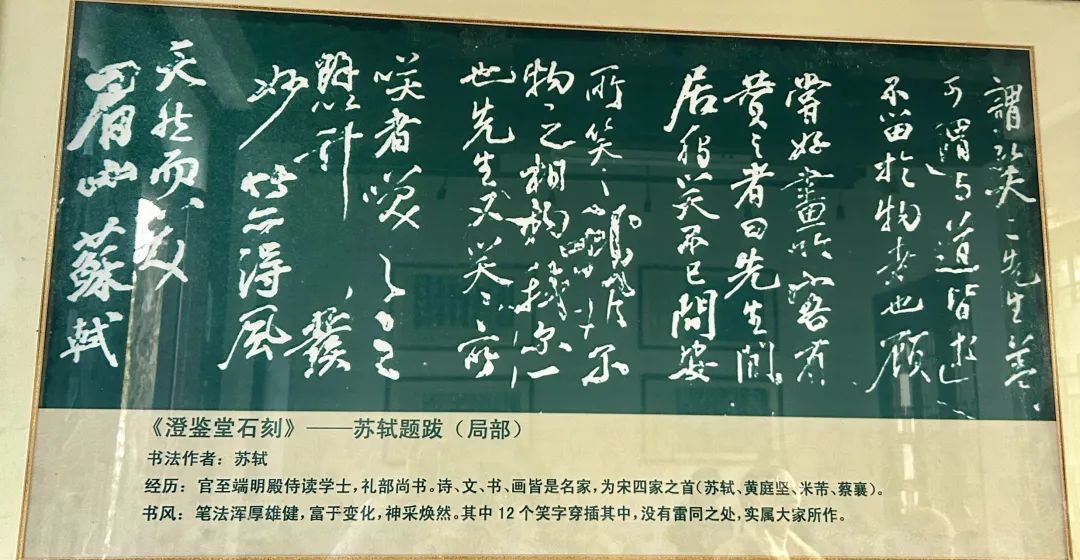 謂笑〻先生蓋
可謂与道皆逝
不留於物者也顧
嘗好畫竹客有
贊之者曰先生閒
居獨笑不已問安
所笑〻我非尔
物之相物我尔一
也先生又笑〻所
笑者笑〻之
餘以竹發
妙竹亦得風
夭然而笑
眉山蘇軾
《澄鉴堂石刻》——苏轼题跋（局部）
书法作者：苏轼
经历：官至端明殿侍读学士，礼部尚书。诗、文、书、画皆是名家，为宋四家之首（苏轼、黄庭坚、米芾、蔡襄）。
书风：笔法浑厚雄健，富于变化，神采焕然。其中12个笑字穿插其中，没有雷同之处，实属大家所作。